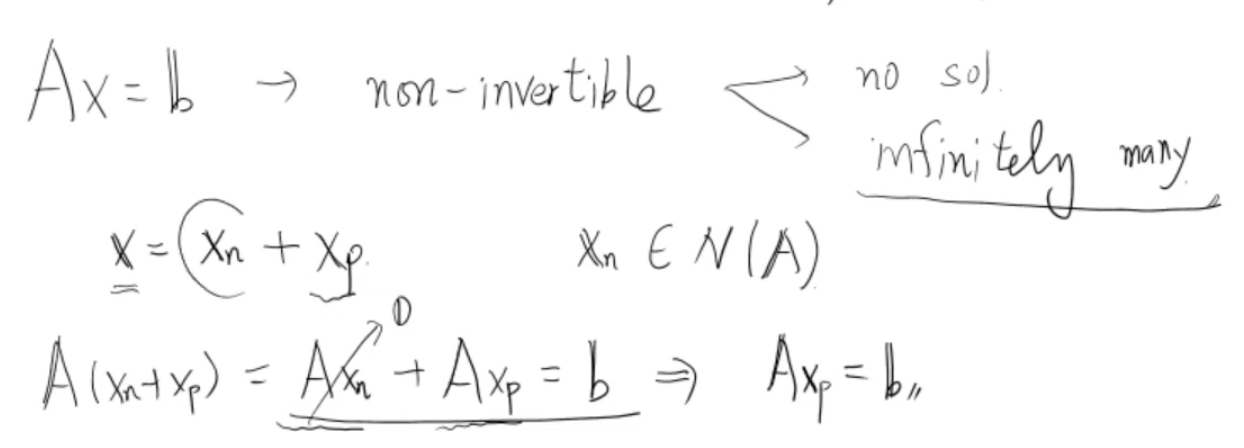 Ax = b → non-invertible → no sol.
→ infinitely many.
x = xₙ + xₚ. xₙ ∈ N(A)
A(xₙ+xₚ) = Axₙ + Axₚ = b ⇒ Axₚ = b〃
0